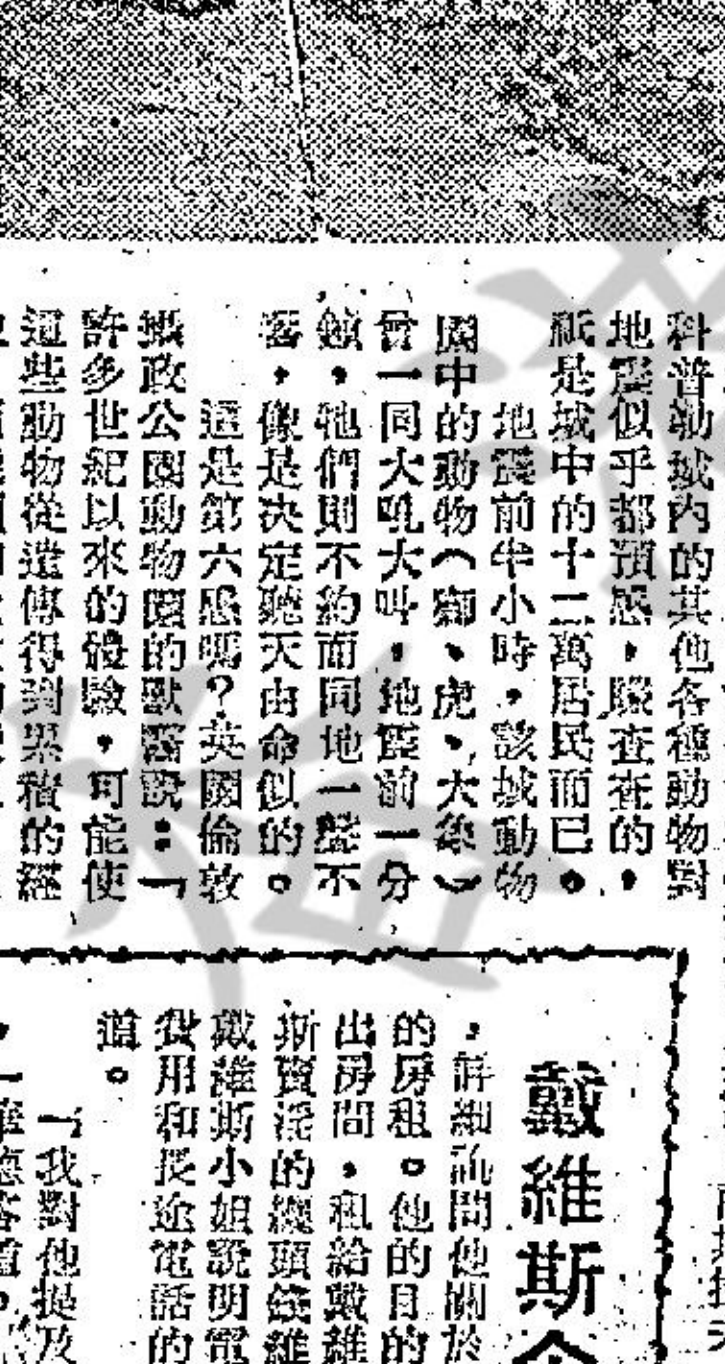 科普勒城內的其他各種動物對
地震似乎都預感,矇查查的,
祇是城中的十二萬居民而已。
地震前半小時,該城動物
園中的動物(獅、虎、大象)
曾一同大吼大叫,地震前一分
鐘,牠們則不約而同地一聲不
響,像是決定聽天由命似的。
這是第六感嗎?英國倫敦
攝政公園動物園的獸醫說:「
許多世紀以來的體驗,可能使
這些動物從遺傳得到累積的經
戴維斯
,詳細訊問他關於
的房租。他的目的
出房間,租給戴維
斯賣淫的 頭錢維
戴維斯小姐說明電
費用和長途電話的
道。
「我對他提及